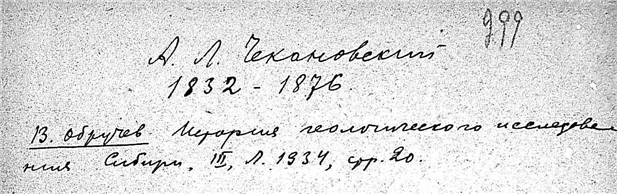 299
А. Л. Чекановский
1832 - 1876.
В. Обручев История геологического исследова-
ния Сибири, III, Л. 1934, стр. 20.